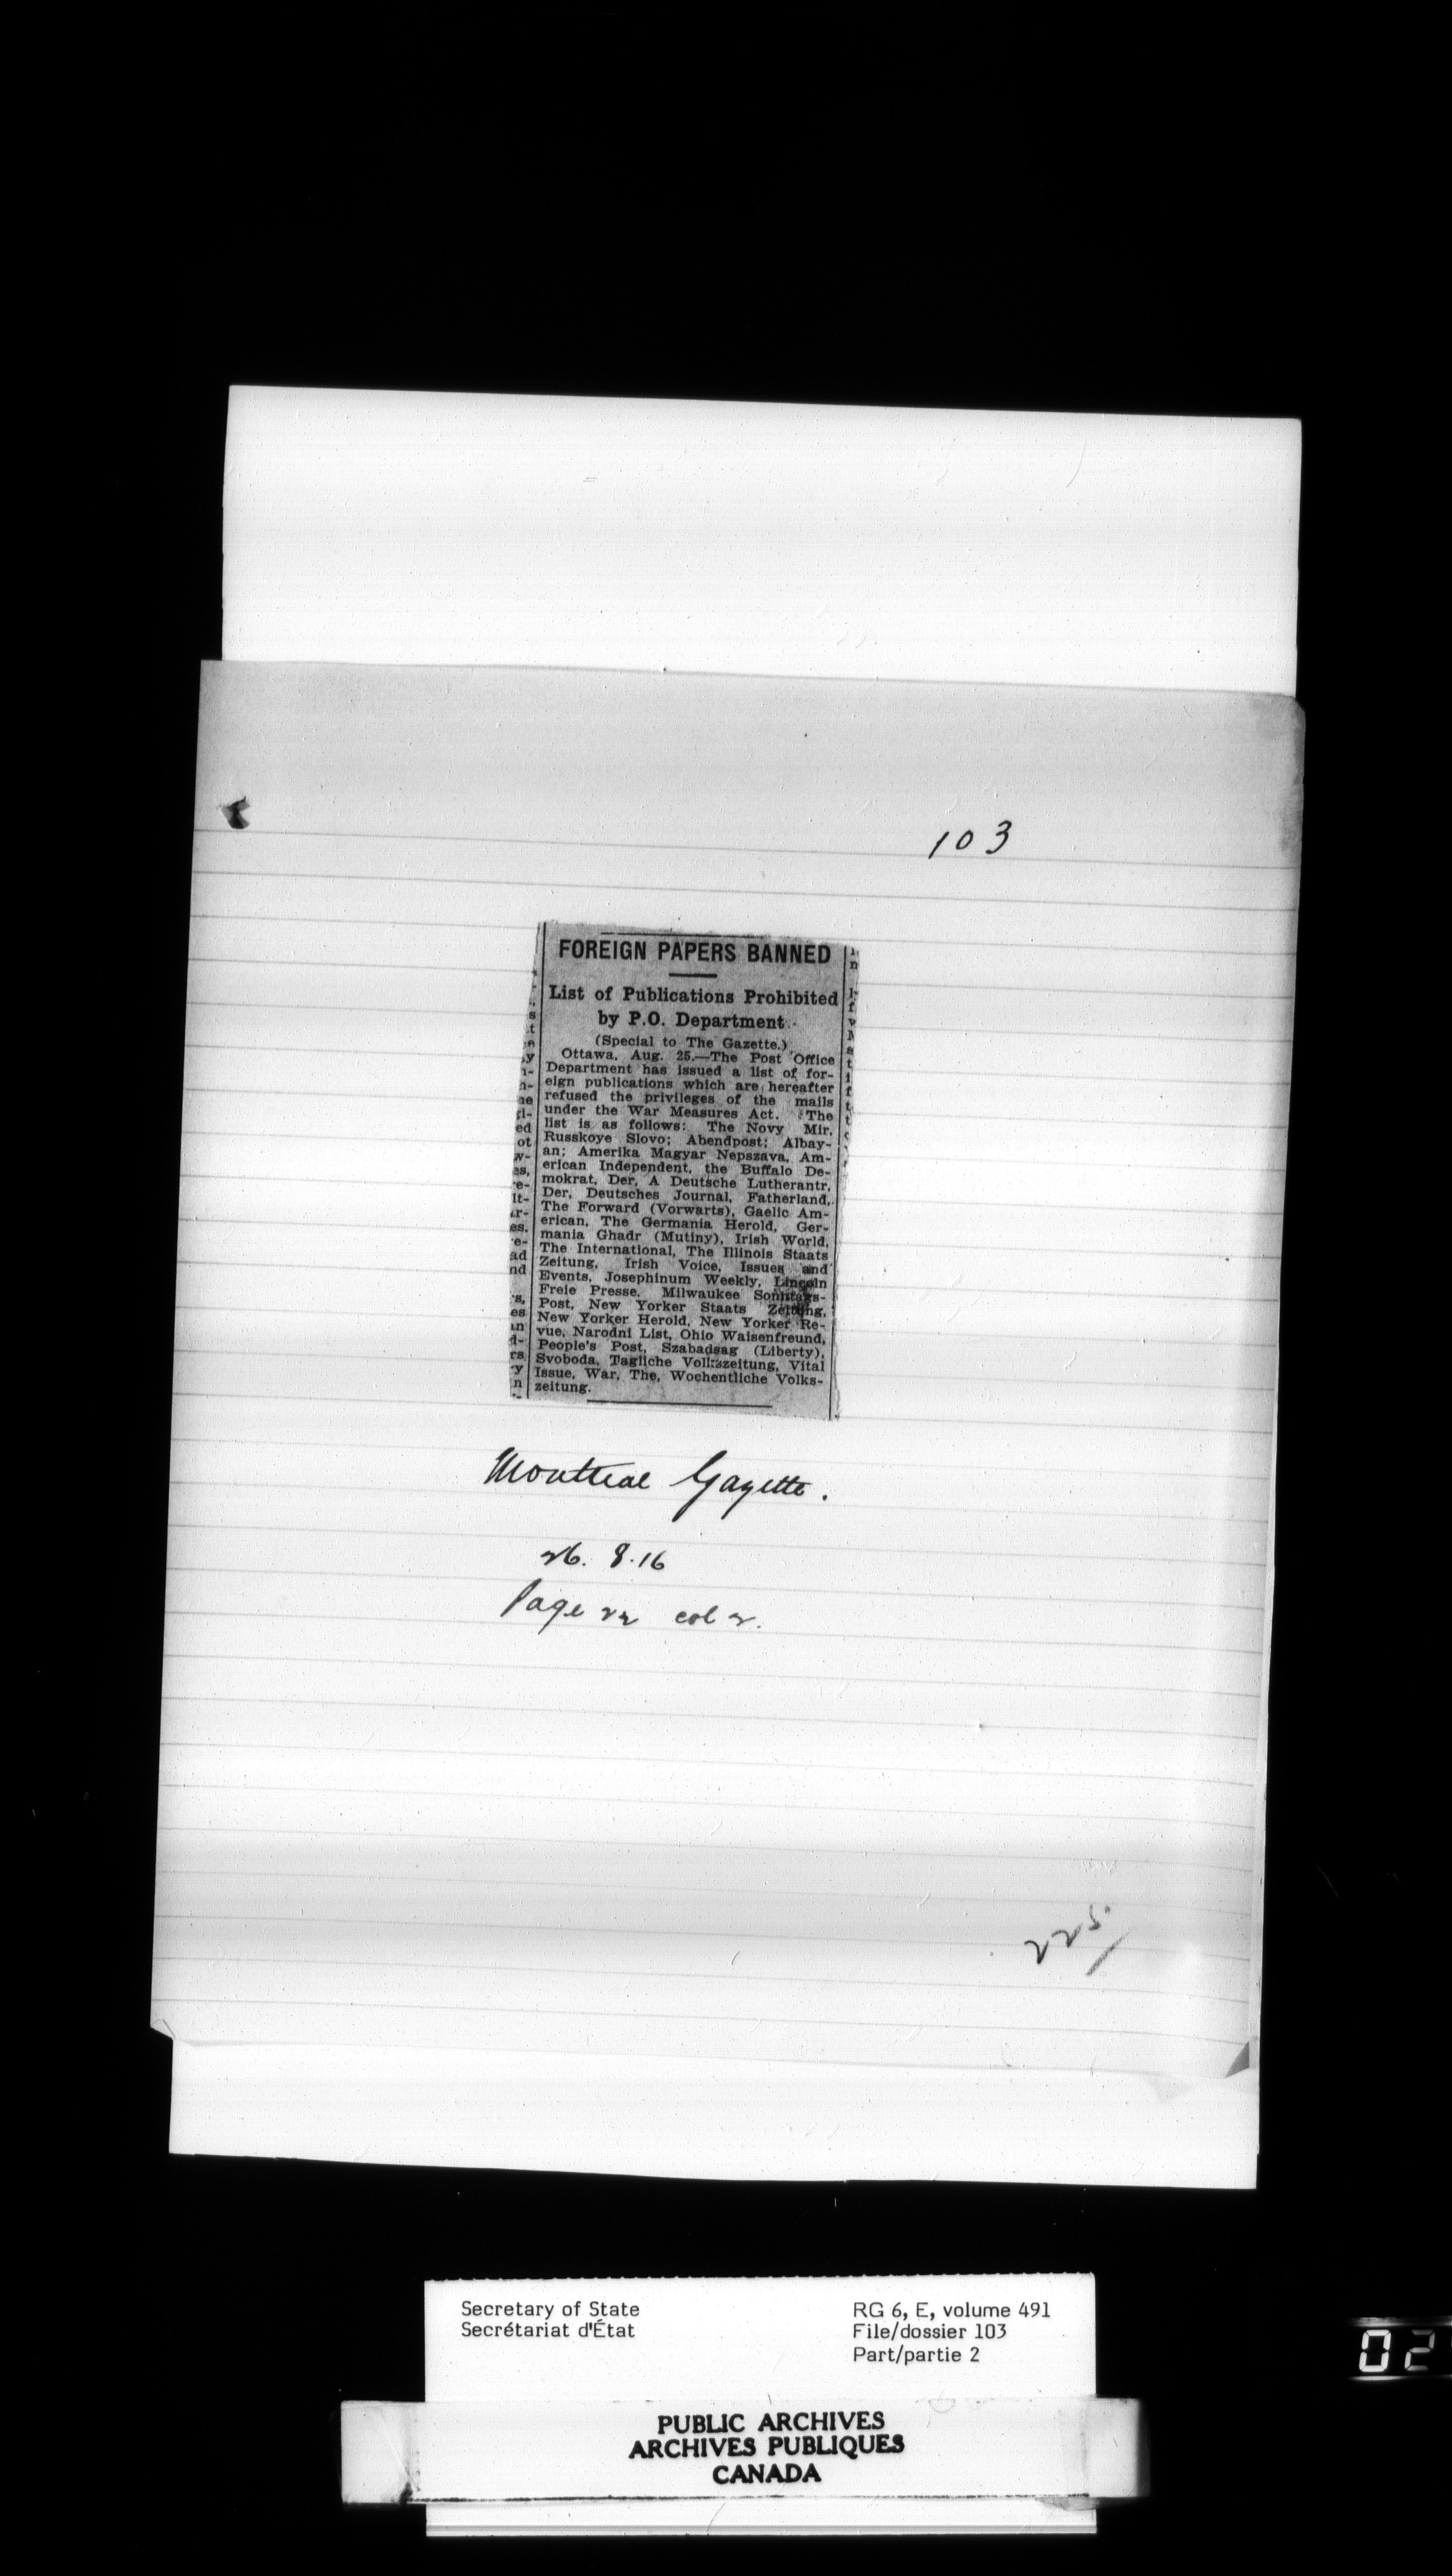 103
FOREIGN PAPERS BANNED
List of Publications Prohibited
by P.O. Department.
(Special to The Gazette.)
Ottawa, Aug. 25.—The Post Office
Department has issued a list of for-
eign publications which are hereafter
refused the privileges of the mails
under the War Measures Act. The
list is as follows: The Novy Mir,
Russkoye Slovo; Abendpost; Albay-
an; Amerika Magyar Nepszava, Am-
erican Independent, the Buffalo De-
mokrat, Der, A Deutsche Lutherantr,
Der, Deutsches Journal, Fatherland,
The Forward (Vorwarts), Gaelic Am-
erican, The Germania Herold, Ger-
mania Ghadr (Mutiny), Irish World,
The International, The Illinois Staats
Zeitung, Irish Voice, Issues and
Events, Josephinum Weekly, Lincoln
Freie Presse, Milwaukee Sonntags-
Post, New Yorker Staats Zeitung,
New Yorker Herold, New Yorker Re-
vue, Narodni List, Ohio Waisenfreund,
People's Post, Szabadsag (Liberty),
Svoboda, Tagliche Volkszeitung, Vital
Issue, War, The, Wochentliche Volks-
zeitung.
Montreal Gazette.
26. 8. 16
Page 22 col 2.
225
Secretary of State
Secrétariat d'État
RG 6, E, volume 491
File/dossier 103
Part/partie 2
PUBLIC ARCHIVES
ARCHIVES PUBLIQUES
CANADA
02